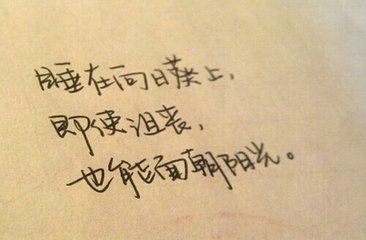 睡在向日葵上，
即使沮丧，
也能面朝阳光。